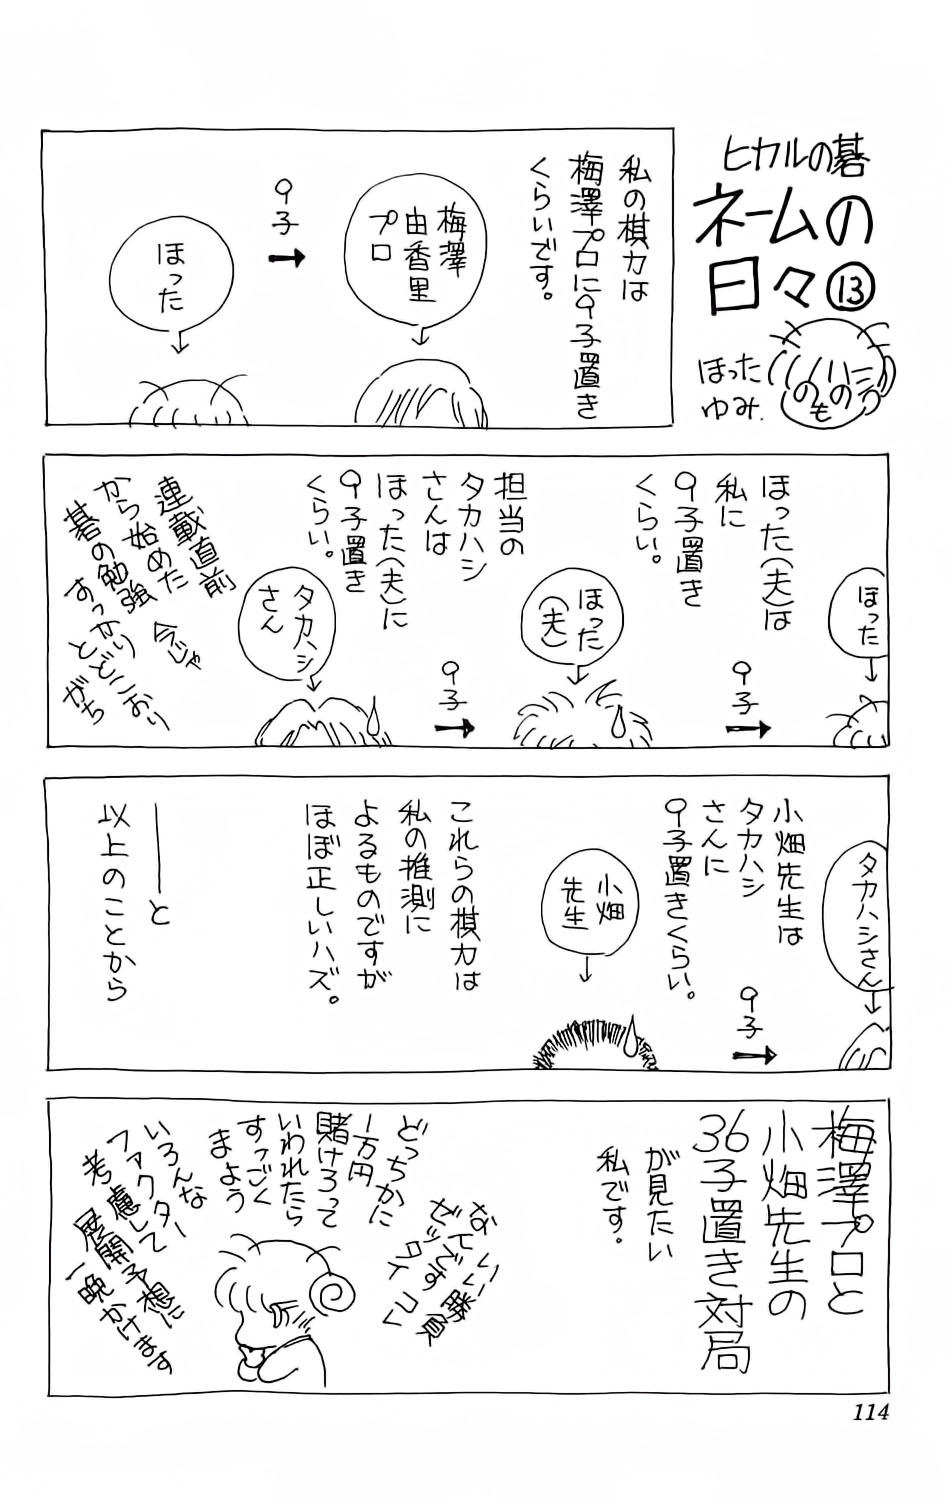 ヒカルの碁
ネームの
日々⑬
ほった
ゆみ.
へのへのもへ
私の棋力は
梅澤プロに9子置き
くらいです。
梅澤
由香里
プロ
9子
ほった
ほった
ほった(夫)は
私に
9子置き
くらい。
9子
ほった
(夫)
担当の
タカハシ
さんは
ほった(夫)に
9子置き
くらい。
9子
タカハシ
さん
連載直前
から始めた
碁の勉強
今じゃ
すっかり
とどこおり
がち
タカハシさん
小畑先生は
タカハシ
さんに
9子置きくらい。
9子
小畑
先生
これらの棋力は
私の推測に
よるものですが
ほぼ正しいハズ。
―と
以上のことから
梅澤プロと
小畑先生の
36子置き対局
が見たい
私です。
いい勝負
なんです
ゼッタイコレ
どっちかに
1万円
賭けろって
いわれたら
すっごく
まよう
いろんな
ファクター
考慮して
展開予想に
一晩かけます
114